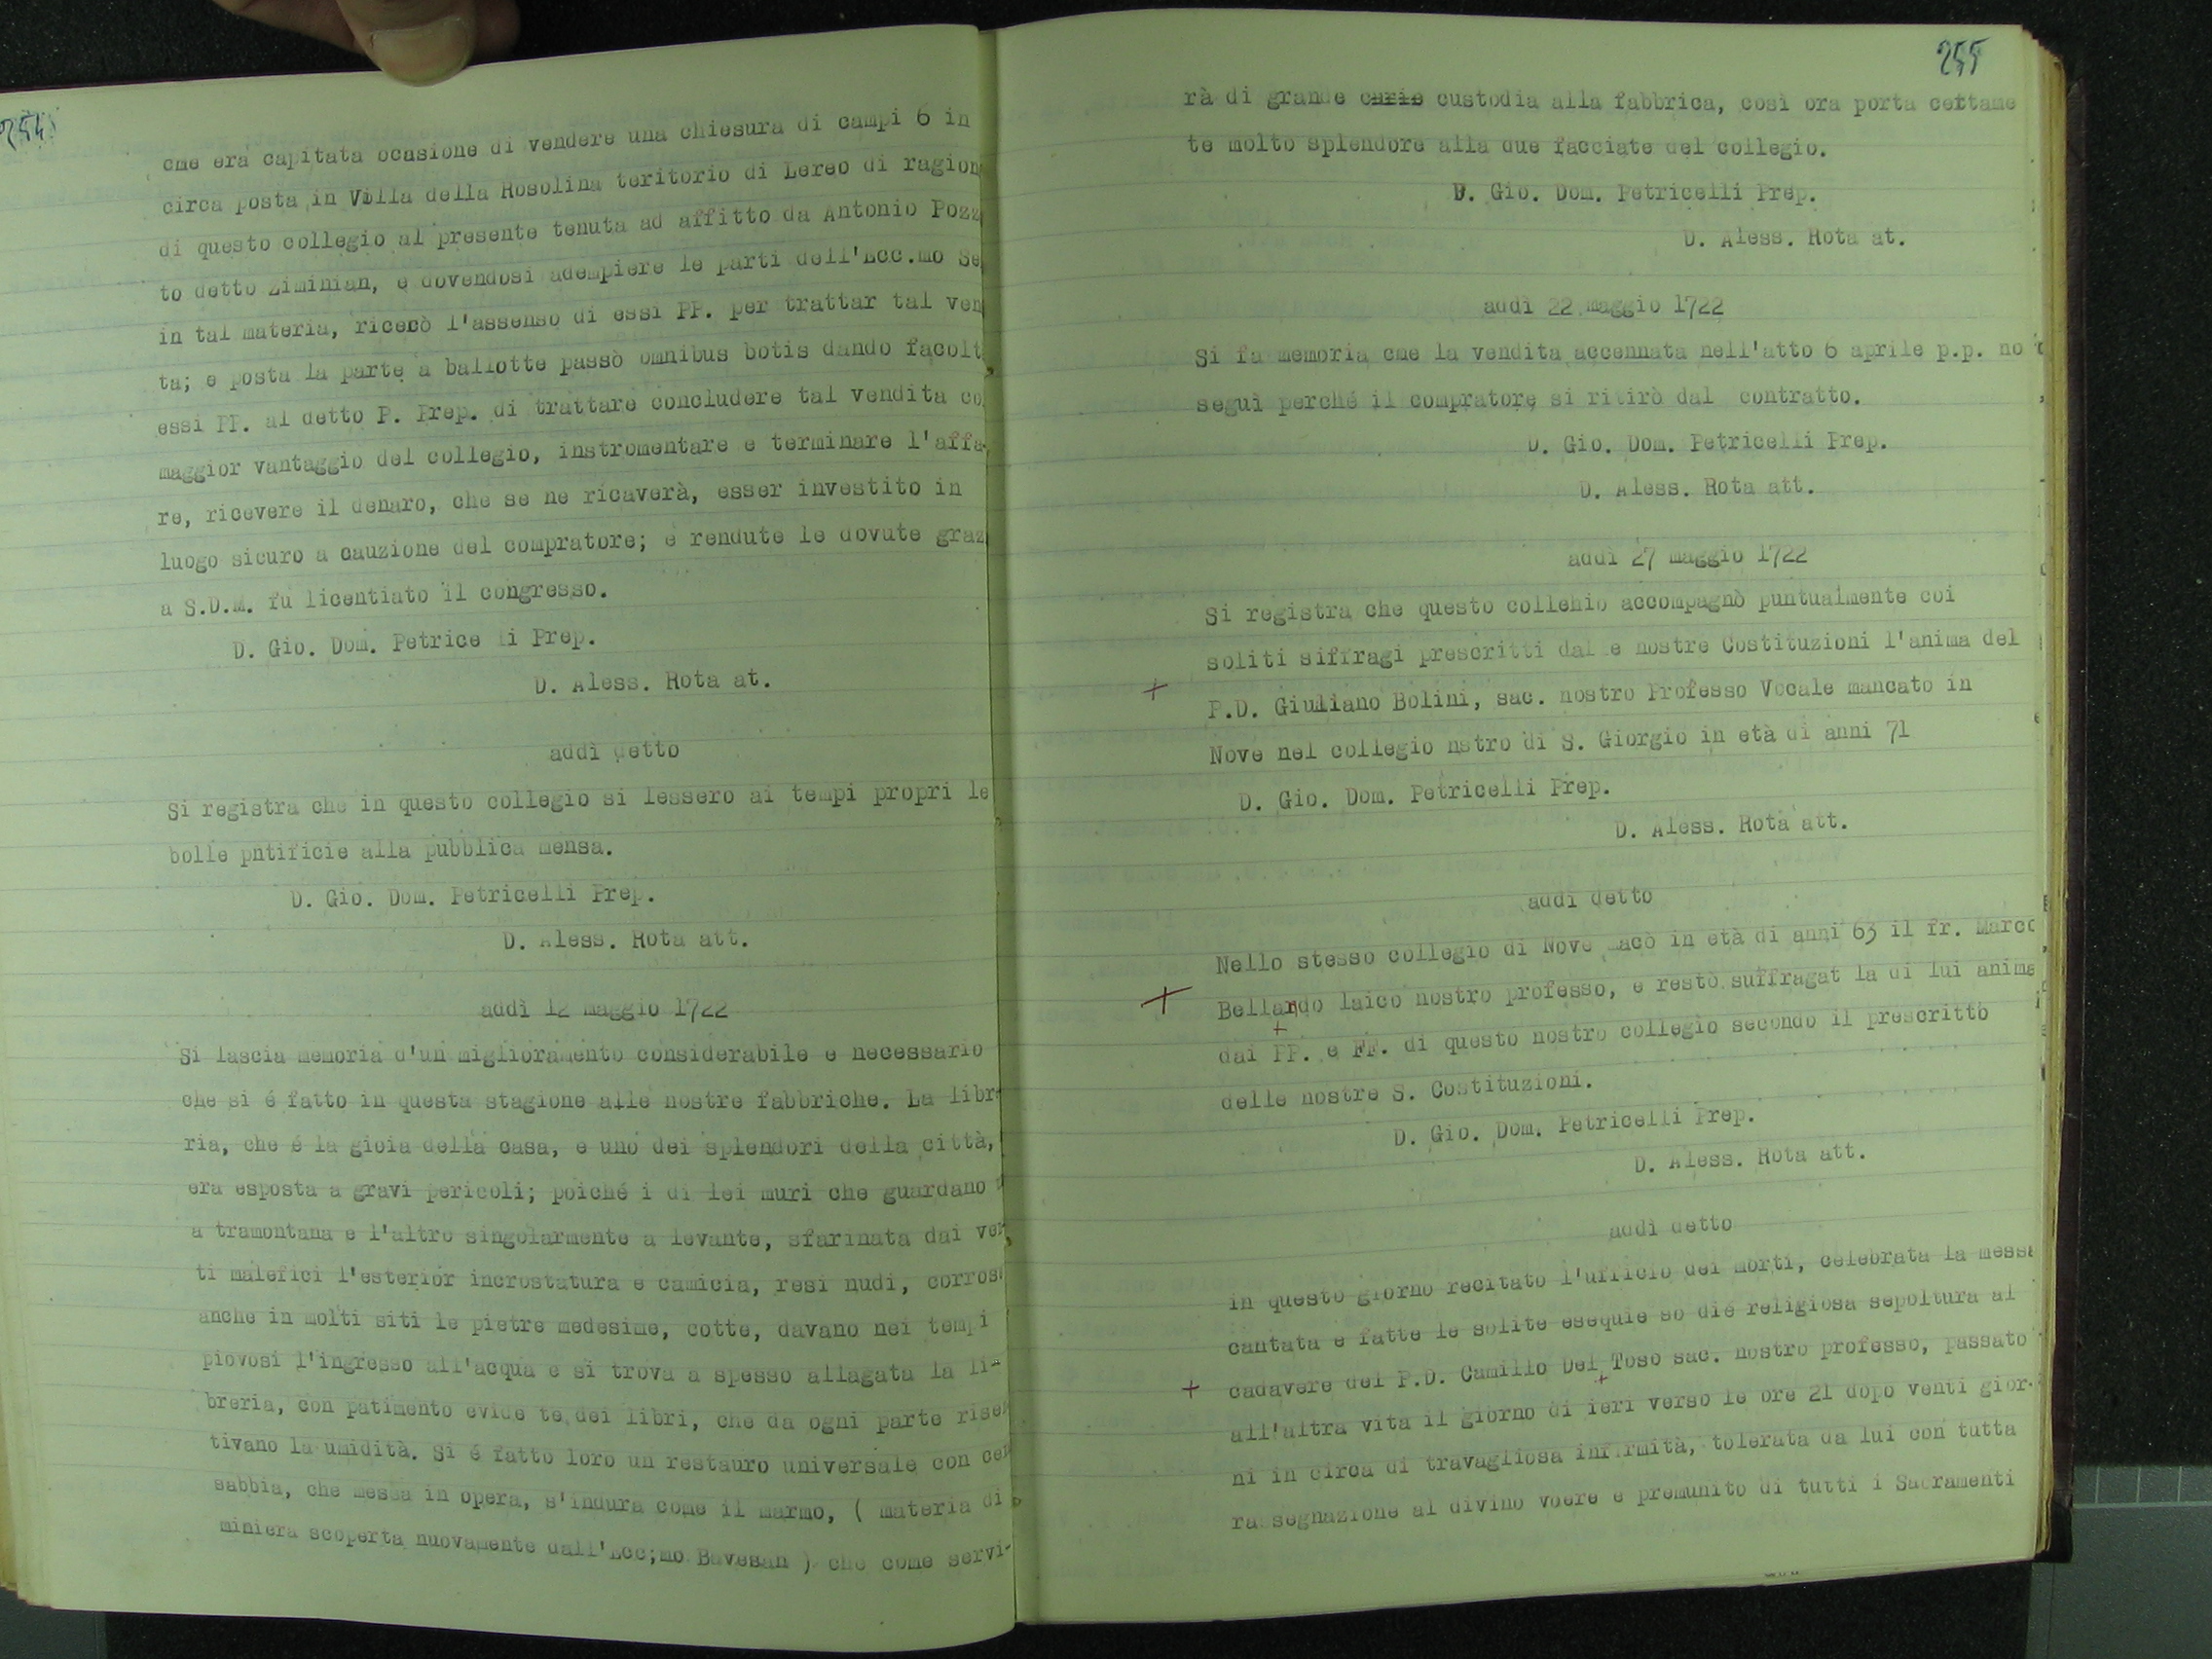 254
cme era capitata ocasione di vendere una chiesura di campi 6 in
circa posta in Villa della Rosolina teritorio di Lereo di ragion
di questo collegio al presente tenuta ad affitto da Antonio Pozz
to detto Ziminian, e dovendosi adempiere le parti dell'Ecc.mo Se
in tal materia, ricercò l'assenso di essi PP. per trattar tal ven
ta; e posta la parte a ballotte passò omnibus botis dando facolt
essi PP. al detto P. Prep. di trattare concludere tal vendita co
maggior vantaggio del collegio, instromentare e terminare l'affa
re, ricevere il denaro, che se ne ricaverà, esser investito in
luogo sicuro a cauzione del compratore; e rendute le dovute graz
a S.D.M. fu licentiato il congresso.
D. Gio. Dom. Petrice li Prep.
D. Aless. Rota at.
addì detto
Si registra che in questo collegio si lessero ai tempi propri le
bolle pntificie alla pubblica mensa.
D. Gio. Dom. Petricelli Prep.
D. Aless. Rota att.
addì 12 maggio 1722
Si lascia memoria d'un miglioramento considerabile e necessario
che si é fatto in questa stagione alle nostre fabbriche. La libr
ria, che é la gioia della casa, e uno dei splendori della città,
era esposta a gravi pericoli; poiché i di lei muri che guardano
a tramontana e l'altro singolarmente a levante, sfarinata dai ven
ti malefici l'esterior incrostatura e camicia, resi nudi, corrosi
anche in molti siti le pietre medesime, cotte, davano nei tempi
piovosi l'ingresso all'acqua e si trova a spesso allagata la li-
breria, con patimento evide te dei libri, che da ogni parte risen
tivano la umidità. Si é fatto loro un restauro universale con cen
sabbia, che messa in opera, s'indura come il marmo, ( materia di
miniera scoperta nuovamente dall'Ecc;mo Bavesan ) che come servi-
255
rà di grande carie custodia alla fabbrica, così ora porta cettame
te molto splendore alla due facciate del collegio.
D. Gio. Dom. Petricelli Prep.
D. Aless. Rota at.
addì 22 maggio 1722
Si fa memoria cme la vendita accennata nell'atto 6 aprile p.p. no
seguì perché il compratore si ritirò dal contratto.
D. Gio. Dom. Petricelli Prep.
D. Aless. Rota att.
addì 27 maggio 1722
Si registra che questo collehio accompagnò puntualmente coi
soliti siffragi prescritti dal e nostre Costituzioni l'anima del
+ P.D. Giuliano Bolini, sac. nostro Professo Vocale mancato in
Nove nel collegio nstro di S. Giorgio in età di anni 71
D. Gio. Dom. Petricelli Prep.
D. Aless. Rota att.
addì detto
Nello stesso collegio di Nove macò in età di anni 63 il fr. Marco
+ Bellando laico nostro professo, e restò suffragat la di lui anima
dai PP. e FF. di questo nostro collegio secondo il prescritto
delle nostre S. Costituzioni.
D. Gio. Dom. Petricelli Prep.
D. Aless. Rota att.
addì detto
in questo giorno recitato l'ufficio dei morti, celebrata la messa
cantata e fatte le solite esequie so dié religiosa sepoltura al
+ cadavere del P.D. Camillo Del Toso sac. nostro professo, passato
all'altra vita il giorno di ieri verso le ore 21 dopo venti gior-
ni in circa di travagliosa infirmità, tolerata da lui con tutta
ra segnazione al divino voere e premunito di tutti i Sacramenti